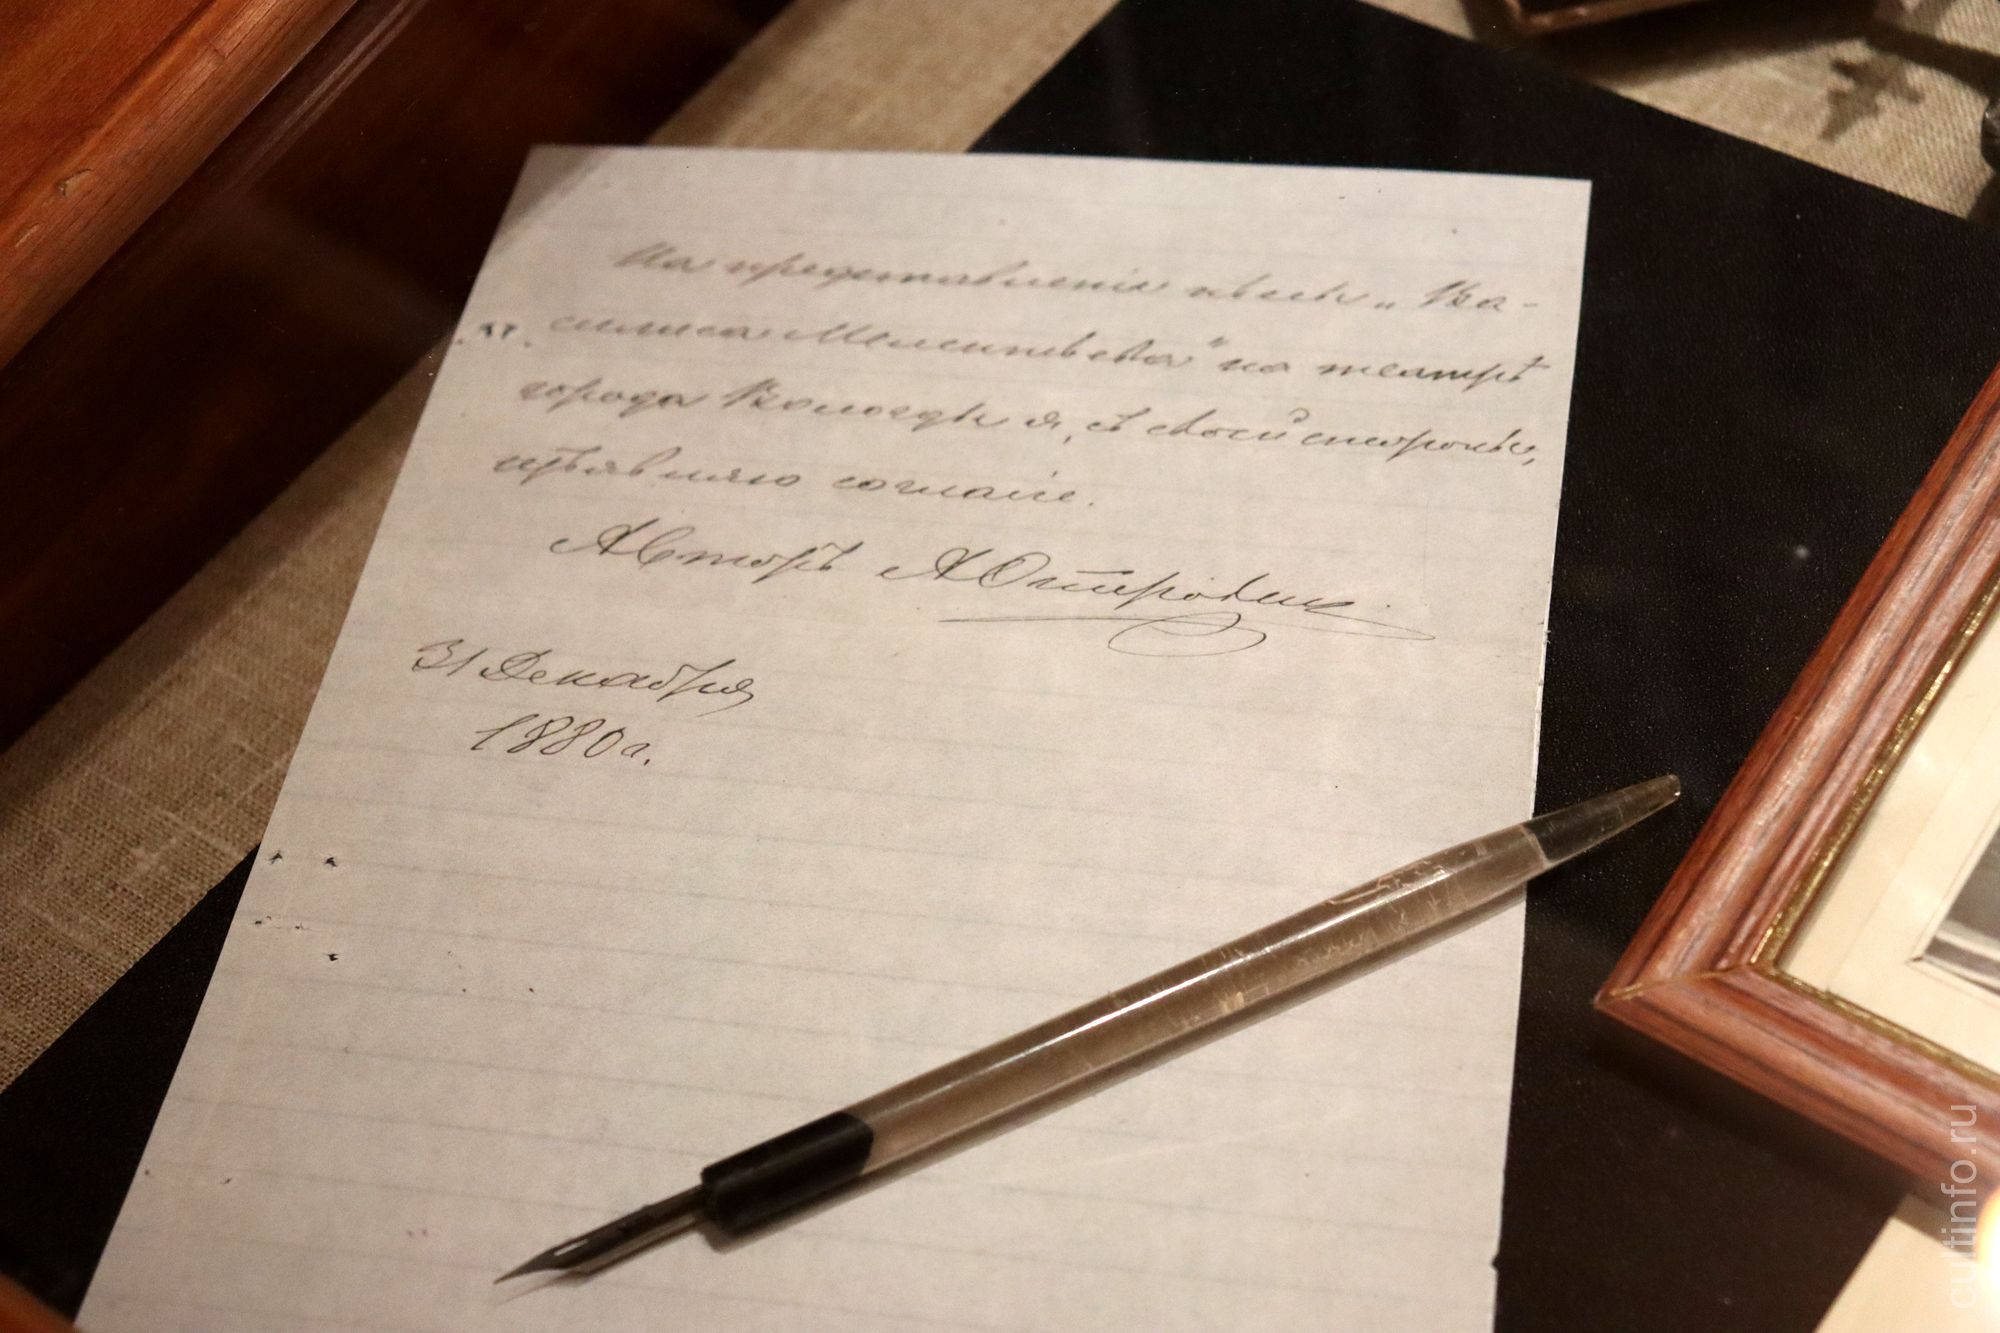 На представленіе піесы „Ва-
силиса Мелентьева" на театрѣ
города Вологды я, съ своей стороны,
изъявляю согласіе.
Авторъ А Островскій
31 Декабря
1880 г.
cultinfo.ru